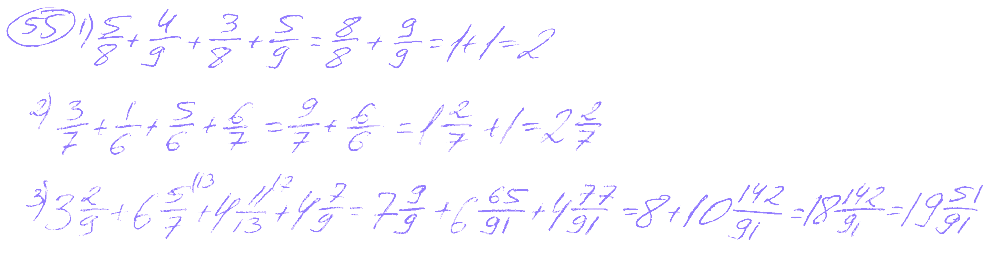 55 1) 5/8 + 4/9 + 3/8 + 5/9 = 8/8 + 9/9 = 1+1 = 2
2) 3/7 + 1/6 + 5/6 + 6/7 = 9/7 + 6/6 = 1 2/7 + 1 = 2 2/7
3) 3 2/9 + 6 5/7 \13 + 4 11/13 \7 + 4 7/9 = 7 9/9 + 6 65/91 + 4 77/91 = 8 + 10 142/91 = 18 142/91 = 19 51/91